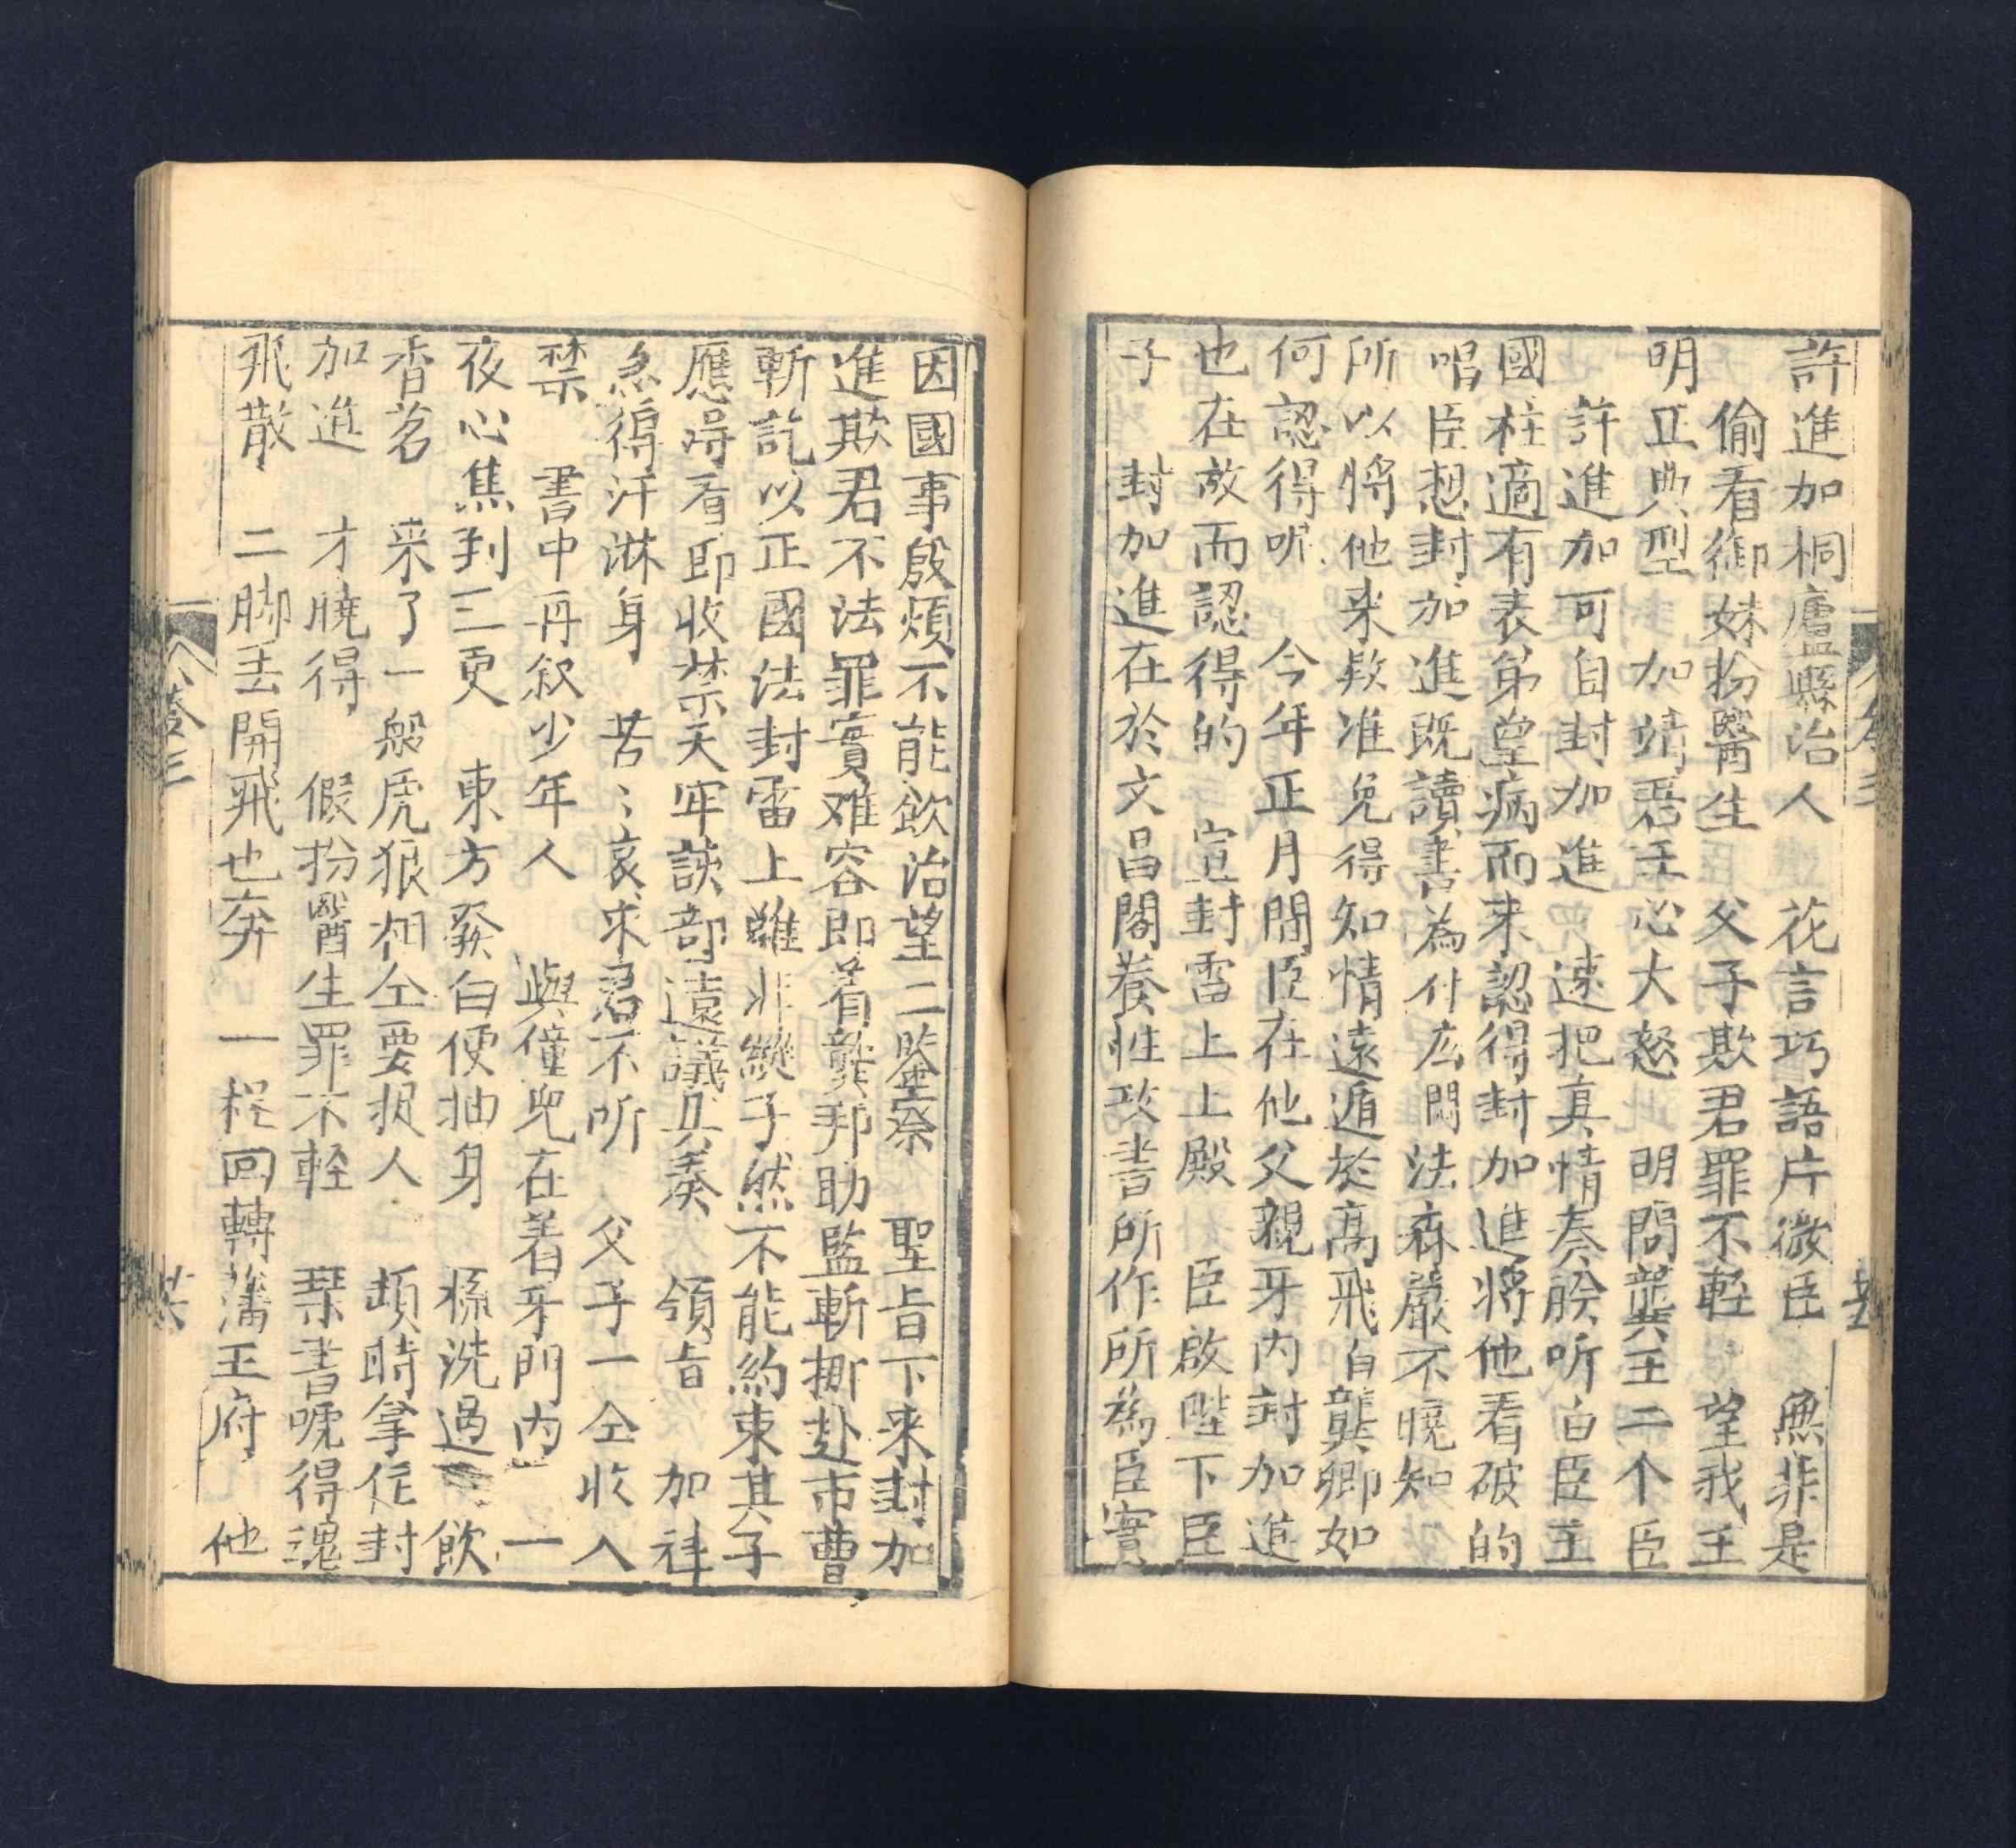 許進加桐廬縣治人　花言巧語片微臣　無非是
偷看御妹扮醫生　父子欺君罪不輕　望我王
明正典型　加靖君王心大怒　明問龔王二个臣
許進加可自封加進　速把真情奏朕听白臣主
國柱適有表弟皇病而来認得封加進将他看破的
唱臣想封加進既讀書為什広問法森嚴不曉知
所以将他来欵准免得知情遠遁於高飛白龔卿如
何認得呢　今年正月間臣在他父親牙內封加進
也在故而認得的　宣封雷上上殿　臣啟陛下臣
子　封加進在於文昌閣養性攻書所作所為臣實
卷三
因國事殷煩不能飲治望二鑒察　聖旨下来封加
進欺君不法罪實难容即着龔邦助監斬挷赴市曹
斬訖以正國法封雷上雖非縱子然不能約束其子
應得看即收禁天牢談部遠議具奏　領旨　加進
急得汗淋身　苦〻哀求君不听　父子一仝收入
禁　書中再叙少年人　與僮兒在着牙門內　一
夜心焦到三更　東方發白便抽身　梳洗過　飲
香茗　来了一般虎狼相仝要捉人　頃時拿任封
加進　才曉得　假扮醫生罪不輕　琴書唬得魂
飛散　二脚丟開飛也奔　一程回轉藩王府　他
卷三